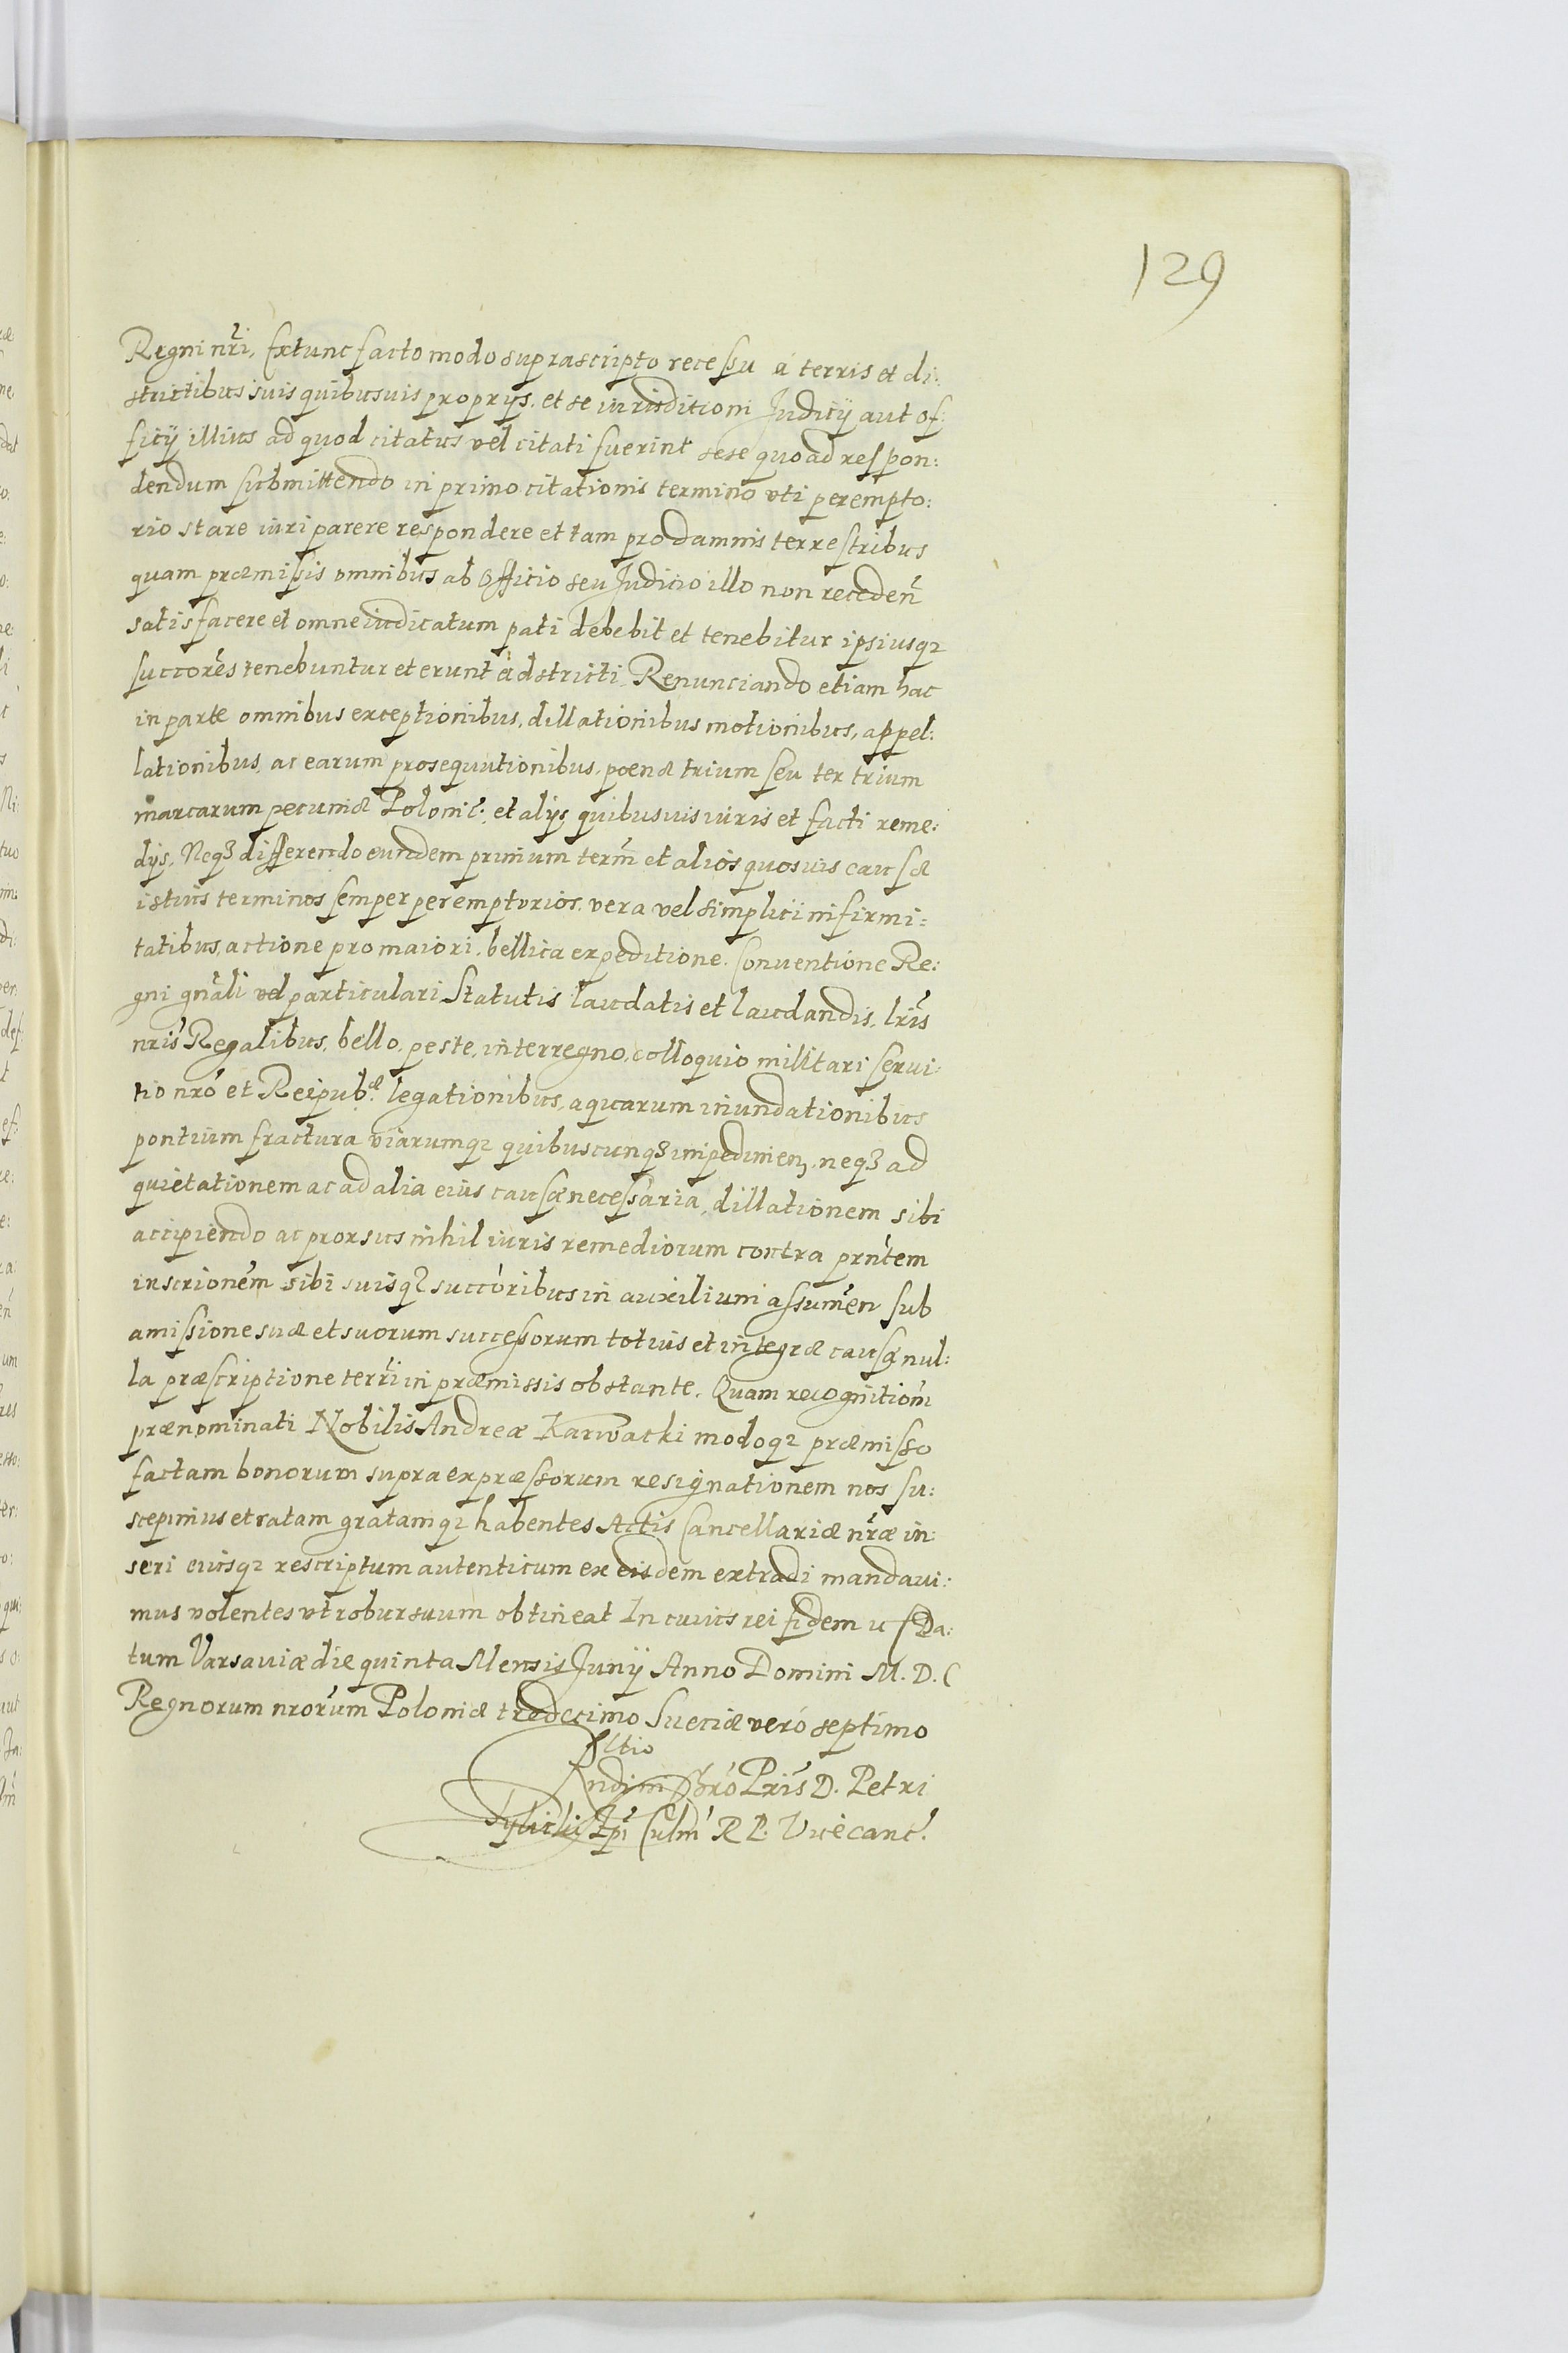 129
Regni nr̃i, Extunc facto modo suprascripto recessu à terris et di:
strictibus suis quibusuis proprijs, et se iurisditioni Judicij aut of:
ficij illius ad quod citatus vel citati fuerint sese quoad respon:
dendum submittendo in primo citationis termino vti perempto:
rio stare iuri parere respondere et tam pro damnis terrestribus
quam præmissis omnibus ab officio seu Juditio illo non receden̄
satisfacere et omne iudicatum pati debebit et tenebitur ipsiusq₂
succor̃es tenebuntur et erunt adstricti, Renunciando etiam hac
in parte omnibus exceptionibus, dillationibus motionibus, appel:
lationibus, ac earum prosequutionibus, poenæ trium seu ter trium
marcarum pecuniæ Polonic̃, et alijs quibusuis iuris et facti reme:
dijs, Neqȝ differendo eundem primum term̃ et alios quosuis causæ
istius terminos semper peremptorios, vera vel simplici infirmi:
tatibus, actione pro maiori, bellica expeditione, Conuentione Re:
gni gñali vel particulari Statutis laudatis et laudandis, lr̃is
nr̃is Regalibus, bello, peste, interregno, colloquio militari serui:
tio nr̃o et Reipub.æ legationibus, aquarum inundationibus
pontium fractura viarumq₂ quibuscunqȝ impedimen, neqȝ ad
quietationem ac ad alia eius causæ necessaria, dillationem sibi
accipiendo ac prorsus nihil iuris remediorum contra prñtem
inscrionẽm sibi suisqȝ succõribus in auxilium assumẽn sub
amissione suæ et suorum successorum totius et integræ causæ nul:
la præscriptione terr̃i in præmissis obstante. Quam recognitiom̃
prænominati Nobilis Andreæ Karwacki modoq₂ præmisso
factam bonorum supra expræssorum resignationem nos su:
scepimus et ratam gratamq₂ habentes Actis Cancellariæ nr̃æ in:
seri eiusq₂ rescriptum autenticum ex eisdem extradi mandaui:
mus volentes vt robur suum obtineat In cuius rei fidem ɿc Da:
tum Varsauiæ die quinta Mensis Junij Anno Domini M. D. C
Regnorum nrõrum Poloniæ tredecimo Sueciæ verò septimo
Rltio
Rndjmi Chr̃o Pris̃ D. Petri
Tylicki Epĩ Culm̃ R P. Vicecanc̃.